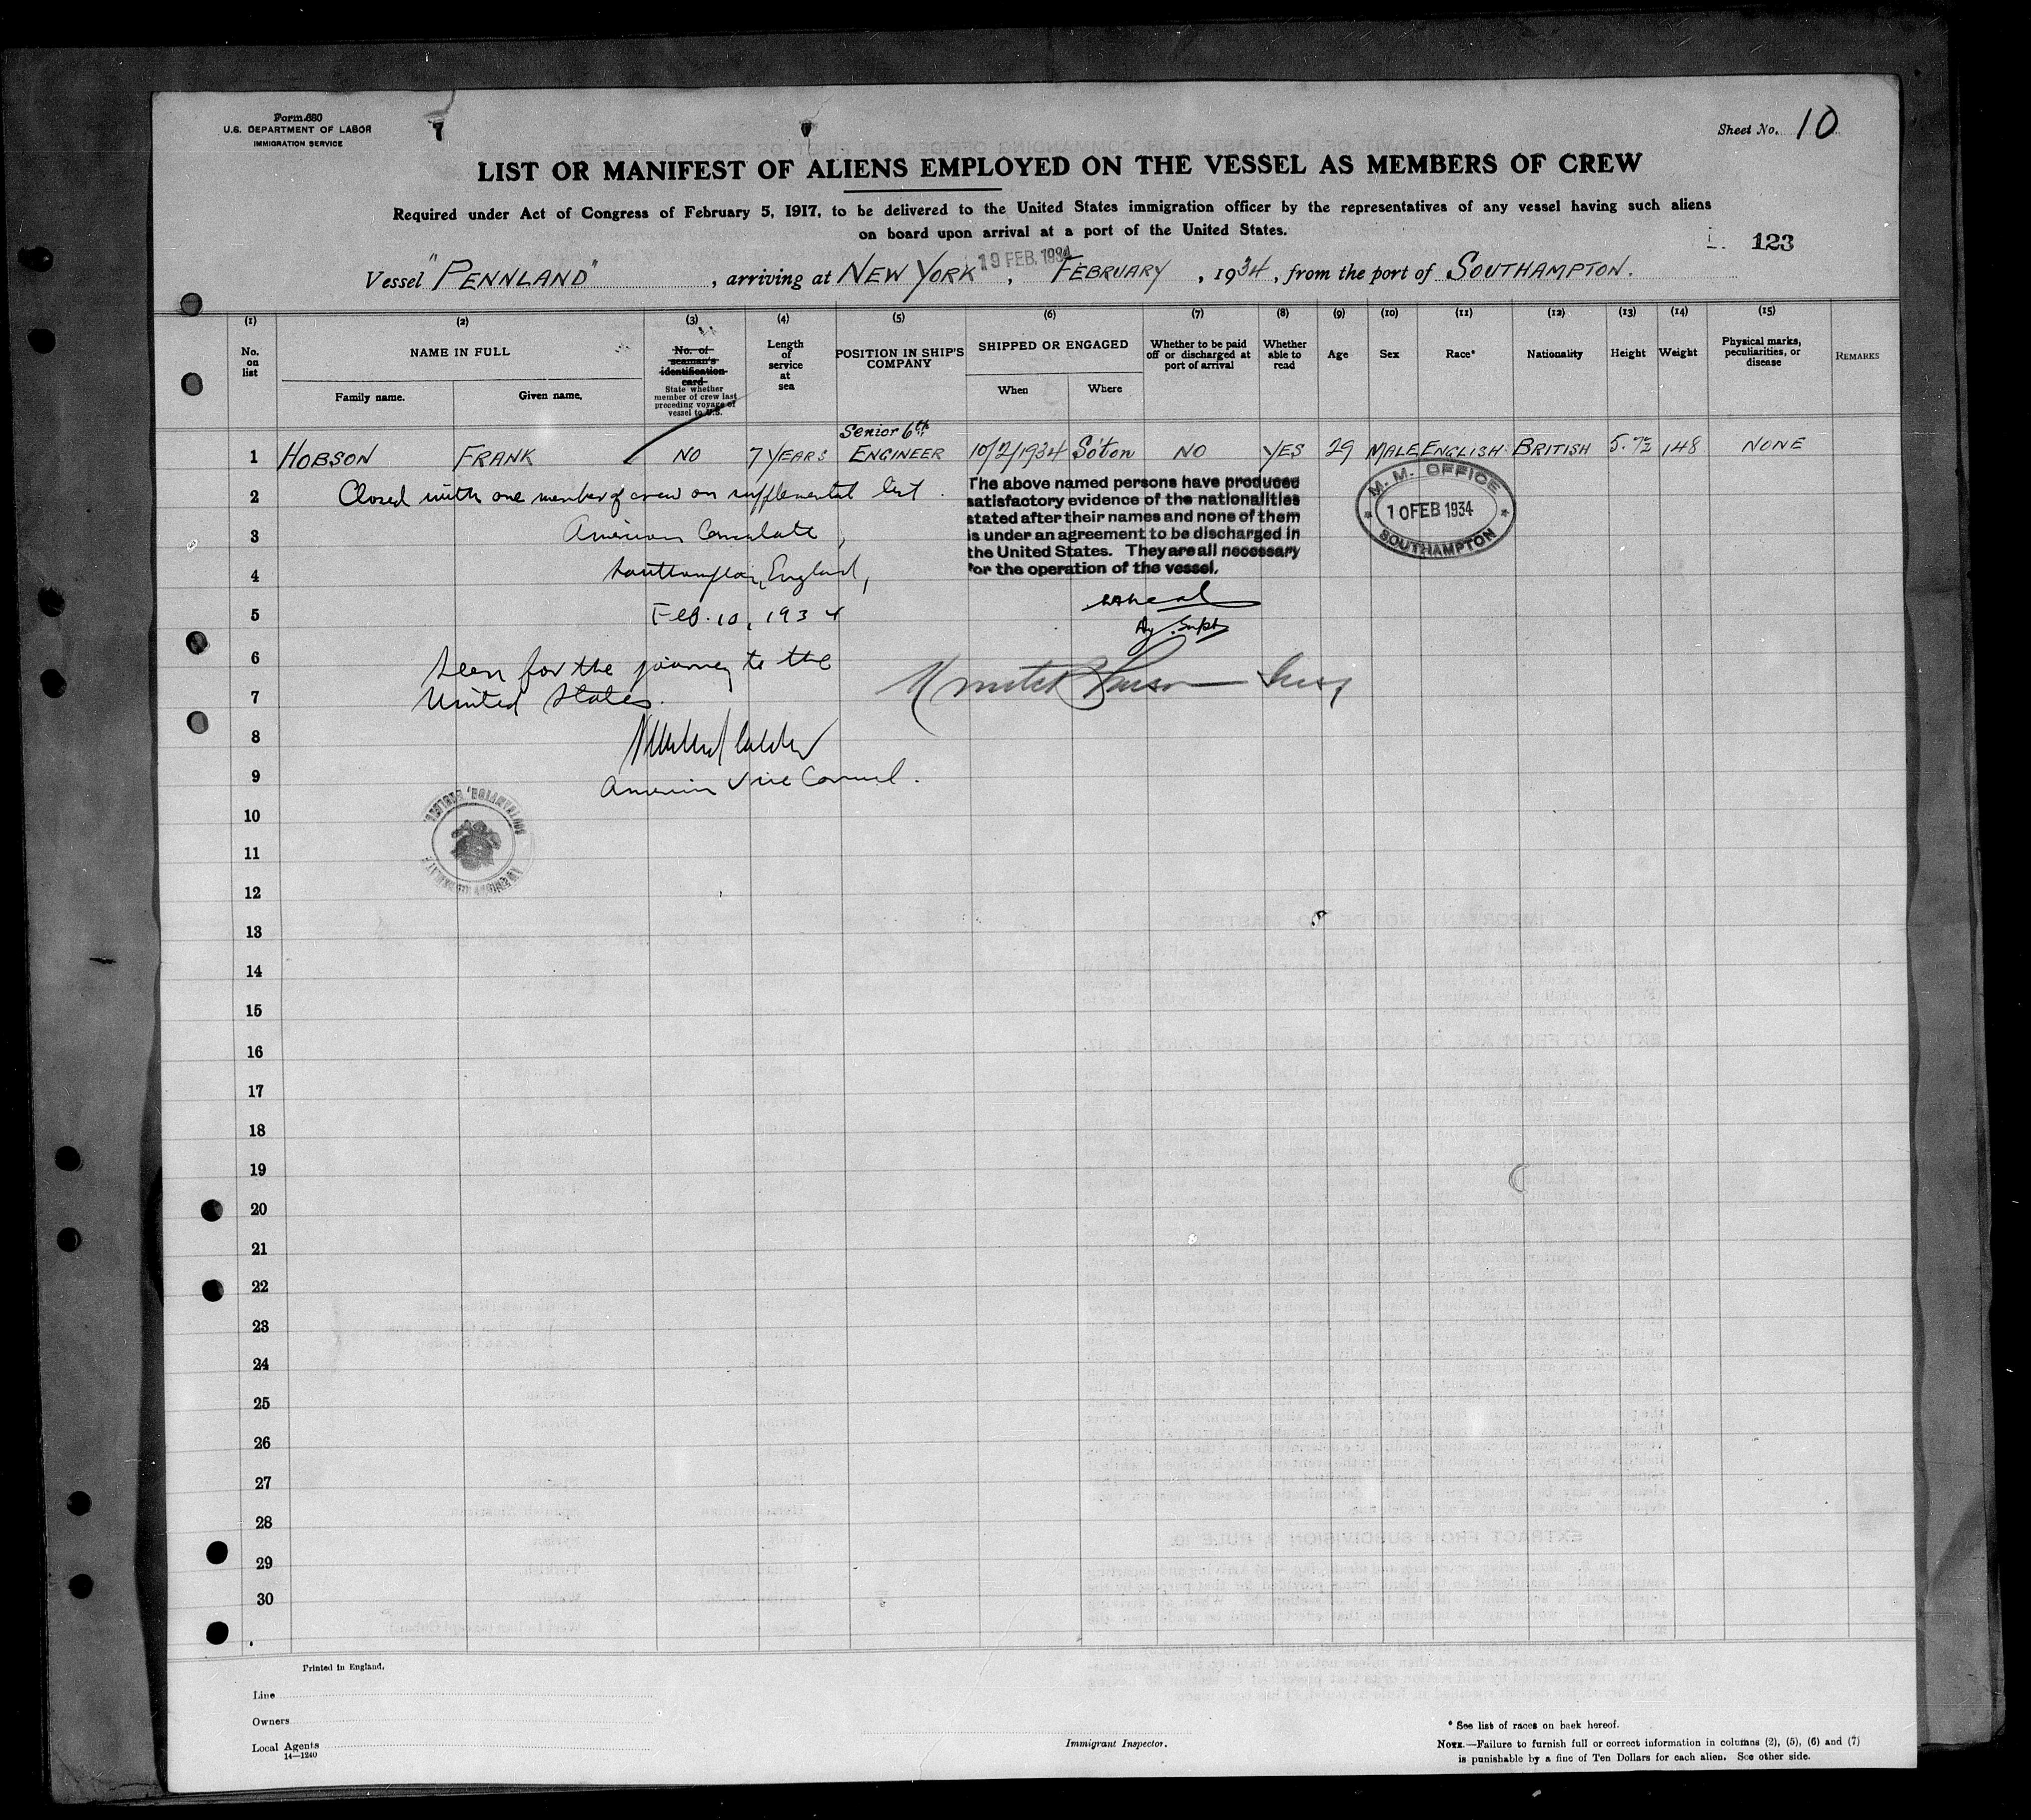 Form 680
U.S. DEPARTMENT OF LABOR
IMMIGRATION SERVICE
Sheet No. 10
LIST OR MANIFEST OF ALIENS EMPLOYED ON THE VESSEL AS MEMBERS OF CREW
Required under Act of Congress of February 5, 1917, to be delivered to the United States immigration officer by the representatives of any vessel having such aliens
on board upon arrival at a port of the United States.
123
19 FEB. 1934
Vessel "PENNLAND", arriving at NEW YORK, FEBRUARY, 1934, from the port of SOUTHAMPTON.
(1) (2) (3) (4) (5) (6) (7) (8) (9) (10) (11) (12) (13) (14) (15)
No. on list
NAME IN FULL
Family name. Given name.
No. of seaman's identification card
State whether member of crew last preceding voyage of vessel to U.S.
Length of service at sea
POSITION IN SHIP'S COMPANY
SHIPPED OR ENGAGED
When Where
Whether to be paid off or discharged at port of arrival
Whether able to read
Age
Sex
Race*
Nationality
Height
Weight
Physical marks, peculiarities, or disease
REMARKS
Senior 6th
1 HOBSON FRANK NO 7 YEARS ENGINEER 10/2/1934 So'ton NO YES 29 MALE ENGLISH BRITISH 5.7½ 148 NONE
2 Closed with one member of crew on supplemental list.
3 American Consulate,
4 Southampton, England,
5 Feb. 10, 1934
6 Seen for the journey to the
7 United States.
8
9 American Vice Consul.
The above named persons have produced
satisfactory evidence of the nationalities
stated after their names and none of them
is under an agreement to be discharged in
the United States. They are all necessary
for the operation of the vessel.
M. M. OFFICE
10 FEB 1934
SOUTHAMPTON
10
11
12
13
14
15
16
17
18
19
20
21
22
23
24
25
26
27
28
29
30
Printed in England.
Line
Owners
Local Agents
14—1240
Immigrant Inspector.
* See list of races on back hereof.
NOTE.—Failure to furnish full or correct information in columns (2), (5), (6) and (7)
is punishable by a fine of Ten Dollars for each alien. See other side.